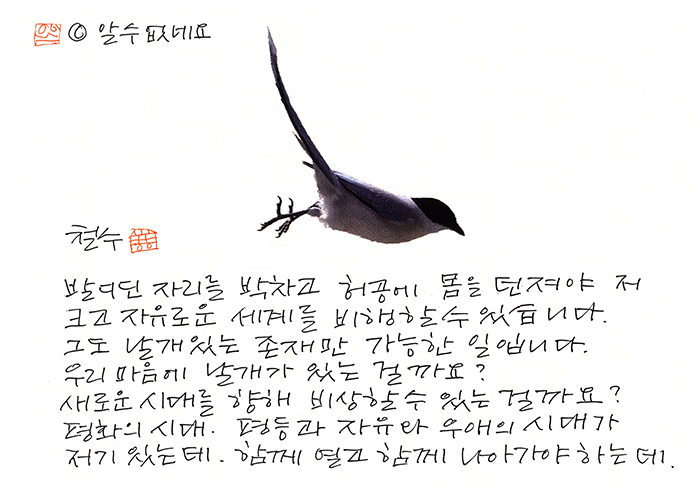 © 알수 없네요
철수
발디딘 자리를 박차고 허공에 몸을 던져야 저
크고 자유로운 세계를 비행할수 있습니다.
그도 날개있는 존재만 가능한 일입니다.
우리 마음에 날개가 있는 걸까요?
새로운 시대를 향해 비상할수 있는 걸까요?
평화의 시대. 평등과 자유와 우애의 시대가
저기 있는데. 함께 열고 함께 나아가야 하는데.